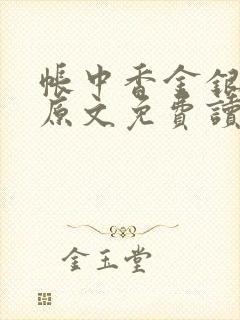 帳中香金銀
原文免費讀
金玉堂